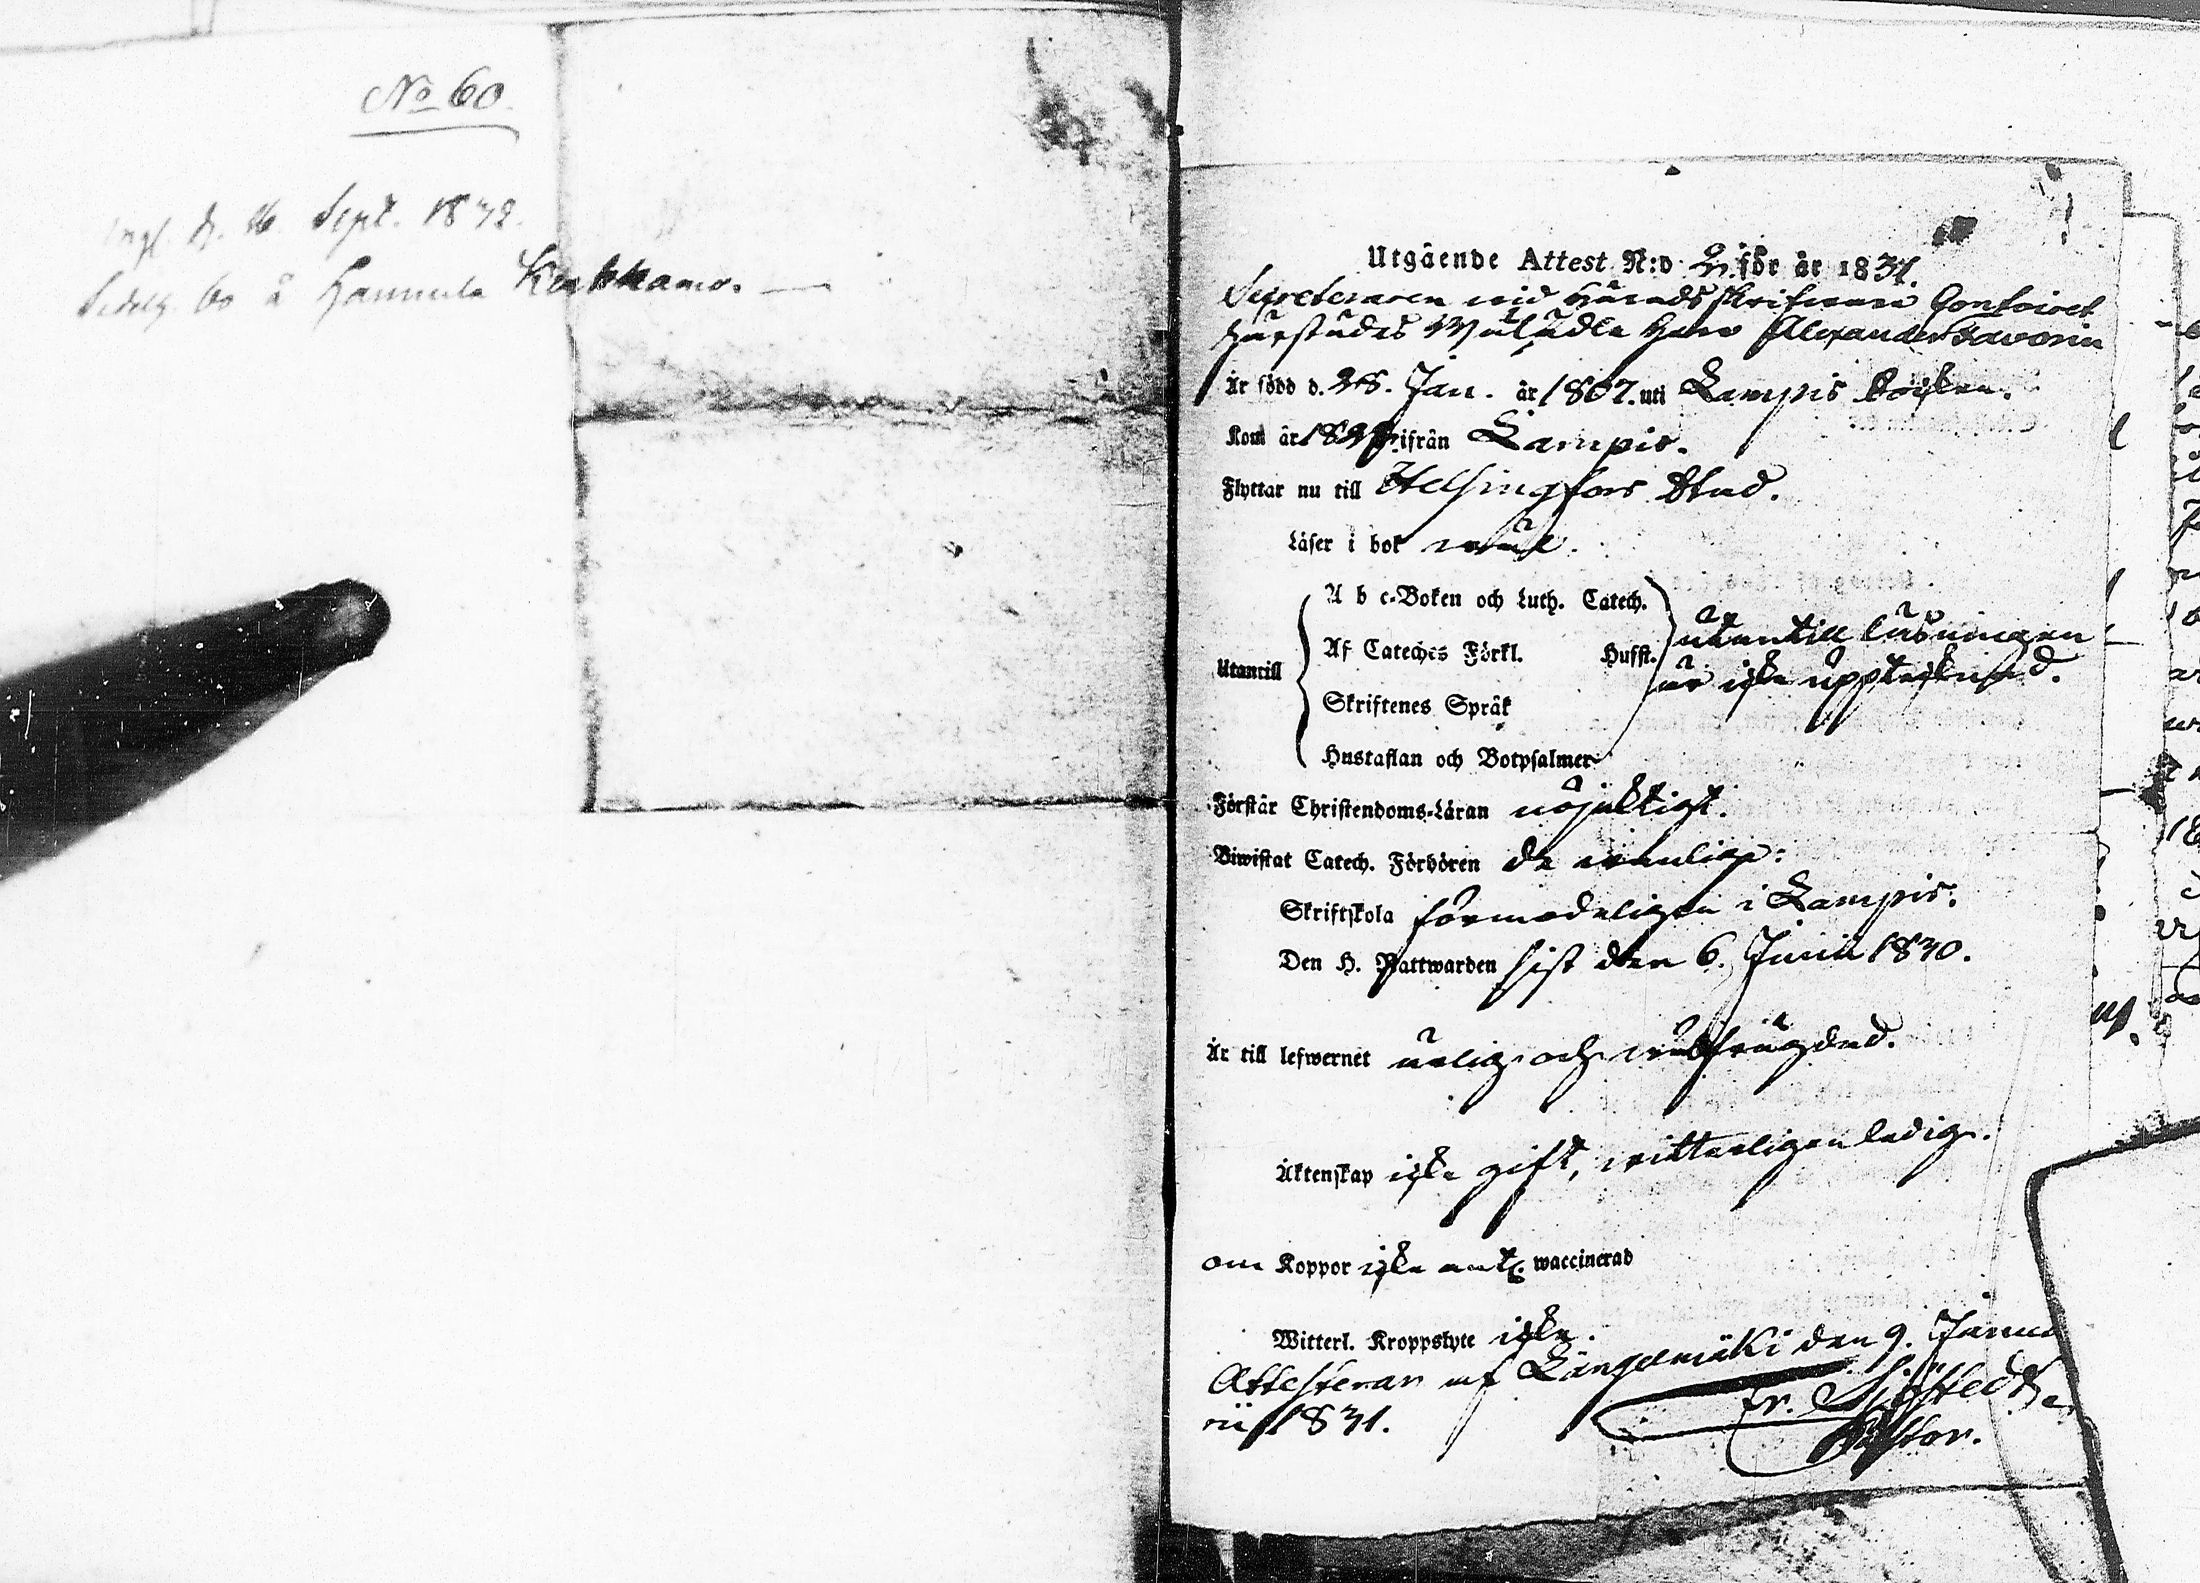 No 60.
d. 16 Sept. 1832.
60 å Hannula
Utgående Attest N:o 2. för år 1831.
Secreteraren wid Häradsskrifware Contoiret
härstädes Wälädle Herr Alexander Favorin
Är född d. 28. Jan. år 1807. uti Lampis Socken.
Kom år ifrån Lampis.
Flyttar nu till Helsingfors Stad.
Läser i bok wäl.
A b c-Boken och Luth. Catech.
Af Cateches Förkl. Hufst. utantill läsningen
Utantill är icke upptecknad.
Skriftenes Språk
Hustaflan och Botpsalmer
Förstår Christendoms-Läran nöjaktigt.
Biwistat Catech. Förhören de wanlige:
Skriftskola förmodeligen i Lampis.
Den H. Nattwarden sist den 6. Junii 1830.
Är till lefwernet ärlig och wälfrägdad.
Äktenskap icke gift, witterligen ledig.
om Koppor icke ant. waccinerad
Witterl. Kroppslyte icke.
Attesterar af Längelmäki den 9. Janua
rii 1831. Fr. Sjöstedt
Pastor.